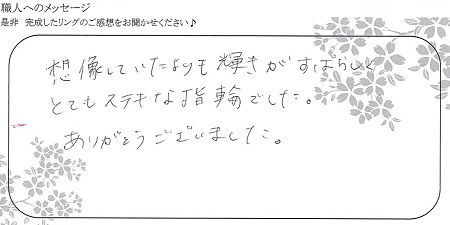 職人へのメッセージ
是非 完成したリングのご感想をお聞かせください♪
想像していたよりも輝きがすばらしく
とてもステキな指輪でした。
ありがとうございました。